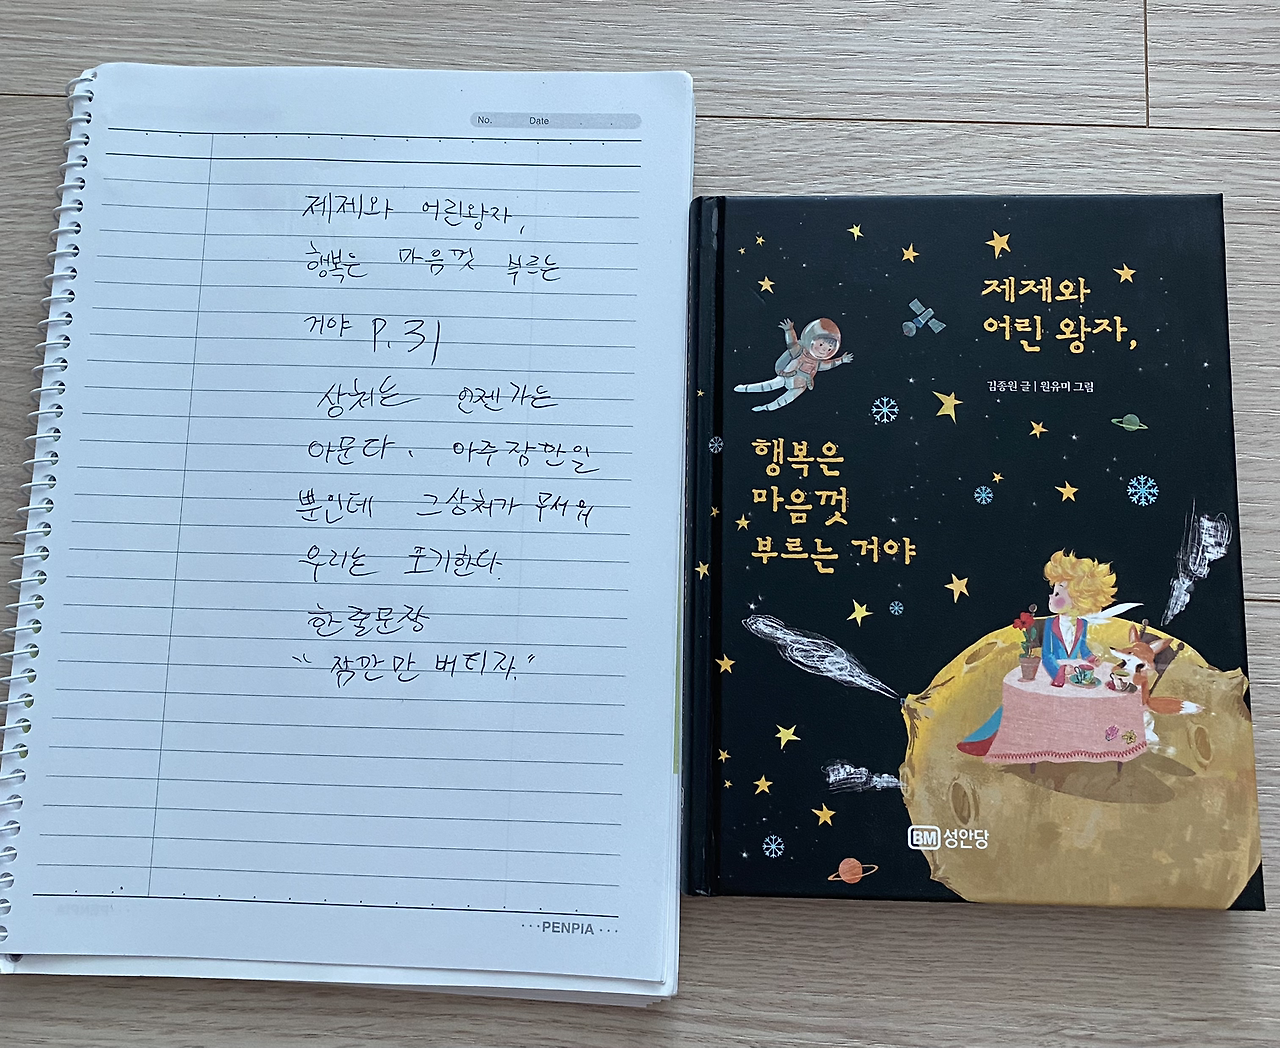 No. Date
제제와 어린왕자,
행복은 마음껏 부르는
거야 P. 31
상처는 언젠가는
아문다. 아주 잠깐일
뿐인데 그상처가 무서워
우리는 포기한다.
한줄문장
"잠깐만 버티자."
PENPIA
제제와
어린 왕자,
김종원 글 | 원유미 그림
행복은
마음껏
부르는 거야
BM 성안당